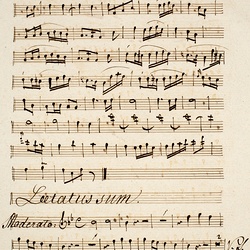 Lætatus sum.
Moderato.
V. S.